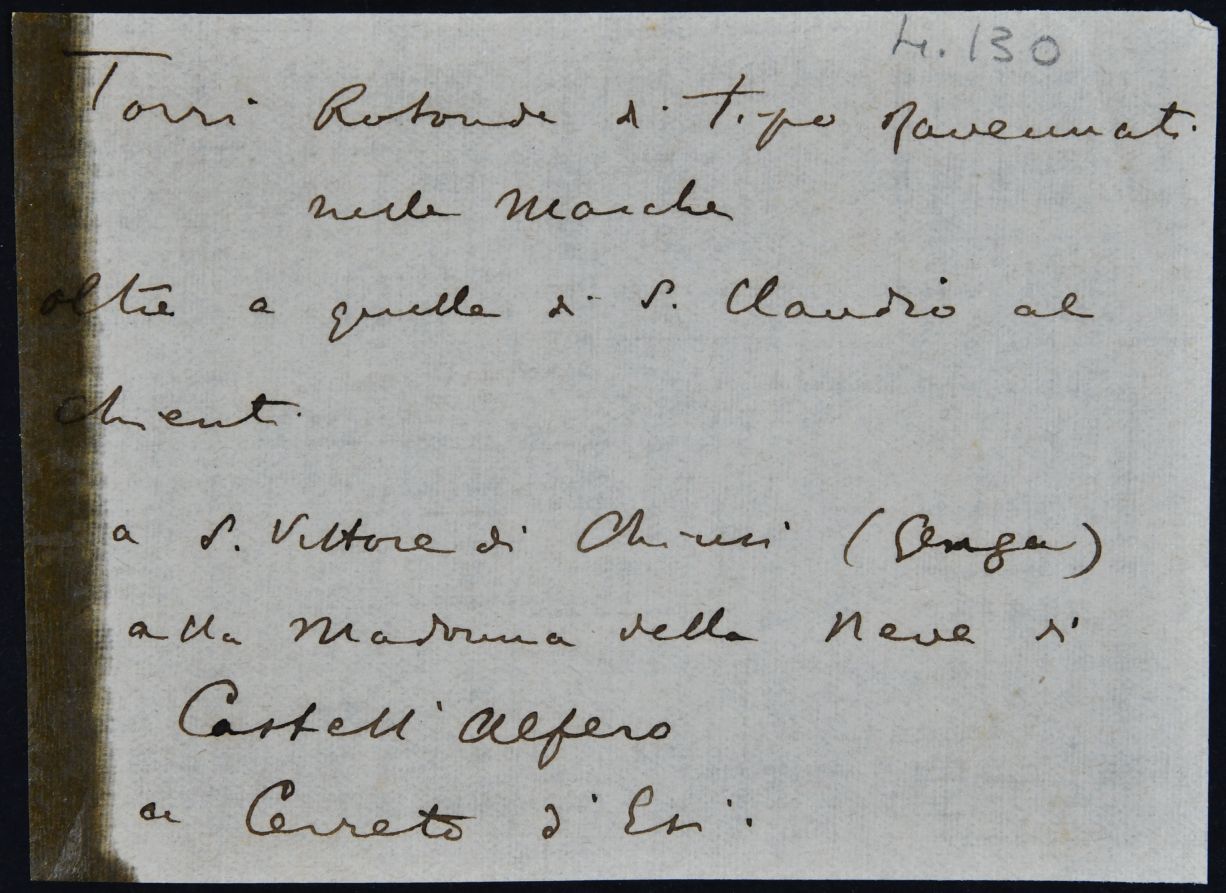 4.130
Torri Rotonde di Tipo Ravennati
nelle Marche
oltre a quella di S. Claudio al
Chienti
a S. Vittore di Chiusi (Genga)
alla Madonna della Neve di
Castell' Alfero
a Cerreto d' Esi.